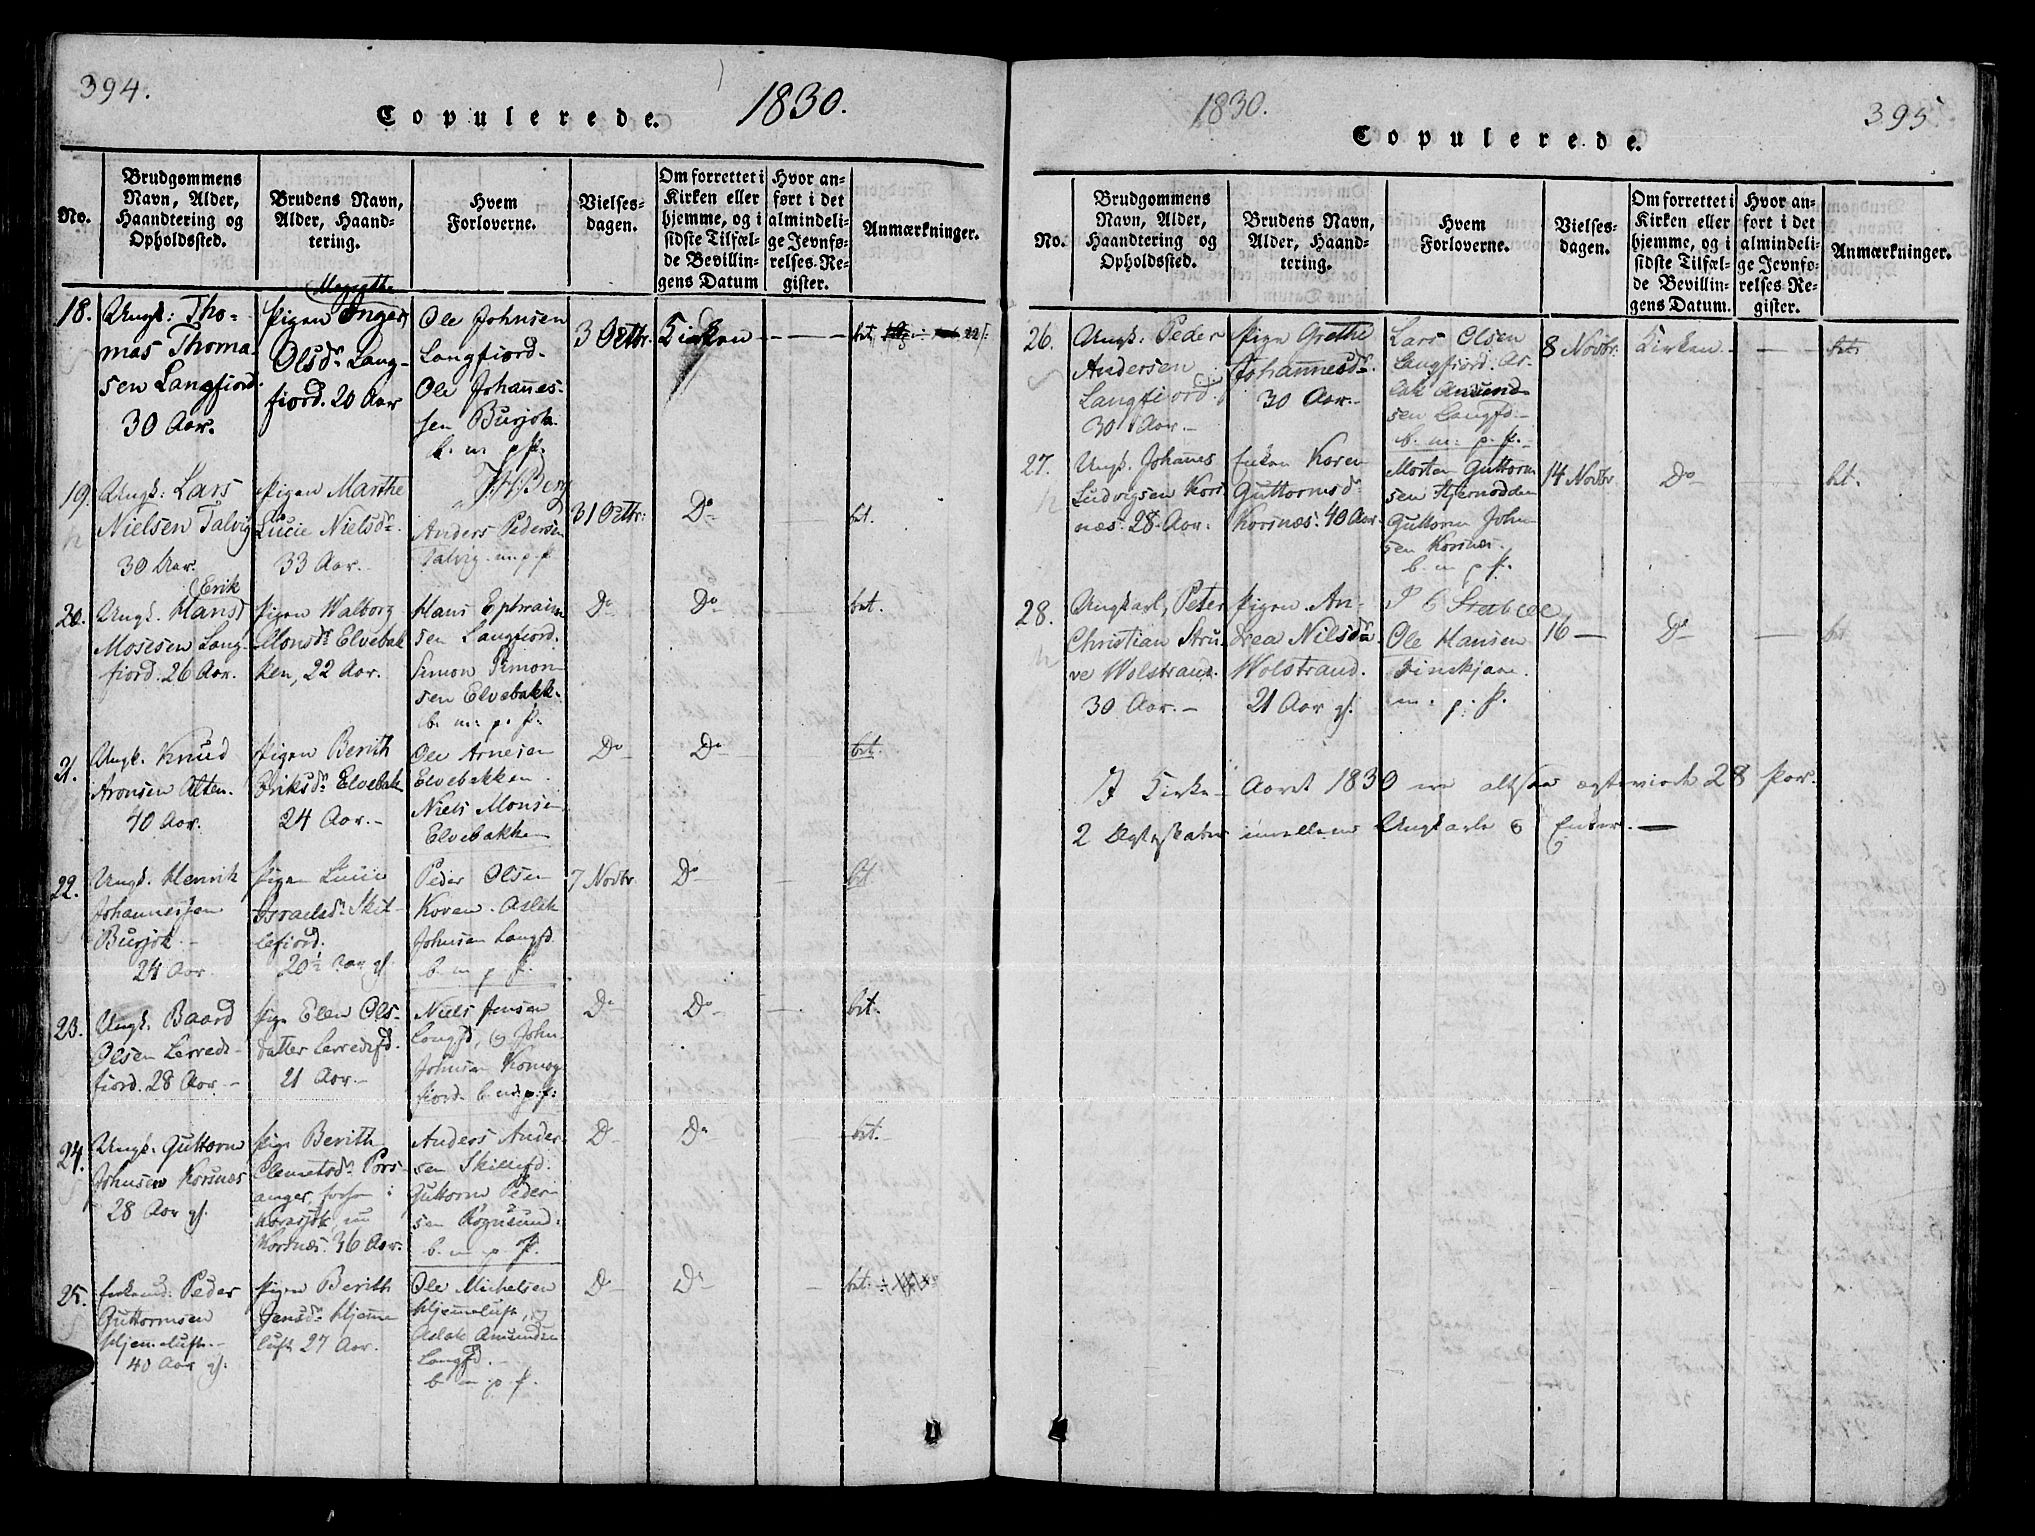 394.
Copulerede. 1830.
No.
Brudgommens Navn, Alder, Haandtering og Opholdssted.
Brudens Navn, Alder, Haandtering.
Hvem Forloverne.
Vielsesdagen.
Om forrettet i Kirken eller hjemme, og i sidste Tilfælde Bevillingens Datum
Hvor anført i det almindelige Jevnførelses-Register.
Anmærkninger.
18.
Ungk: Tho-
mas Thoma-
sen Langfiord.
30 Aar.
Pigen Inger
Olsdr Lang-
fiord. 20 Aar
Ole Johnsen
Langfiord.
Ole Johannes-
sen Burjok.
b. m. p. P.
3 Octbr.
Kirken
bet.
19.
Ungk: Lars
Nielsen Talvig
30 Aar.
Pigen Marthe
Lucie Nielsdr
33 Aar.
Berg
Anders Pedersen
Talvig. m. p. P.
31 Octbr:
Do
bet.
20.
Erik
Ungk. Hans
Mosesen Lang-
fiord. 26 Aar.
Pigen Walborg
Monsdr Elvebak
ken, 22 Aar.
Hans Ephraim
sen Langfiord.
Simon Simon-
sen Elvebakk.
b. m: p. P.
Do
Do
bet.
21.
Ungk. Knud
Aronsen Alten.
40 Aar.
Pigen Berith
Eriksdr Elvebak
24 Aar.
Ole Arnesen
Elvebakken.
Niels Monsen
Elvebakken
Do
Do
bet.
22.
Ungk. Henrik
Johannessen
Burjok.
24 Aar.
Pigen Lucie
Israelsdr Skil-
lefiord.
20½ Aar gl.
Peder Olsen
Koven. Aslak
Johnsen Langfd
b. m p P.
7 Novbr.
Do
bet.
23.
Ungk. Baard
Olsen Lerreds-
fiord. 28 Aar.
Pige Elen Ols-
datter Lerredsfd.
21 Aar.
Niels Jensen
Langfd, og John
Johnsen Komag
fiord b. m. p. P:
Do
Do
bet.
24.
Ungk. Guttorm
Johnsen Korsnæs
28 Aar gl.
Pige Berith
Clemetsdr Pors-
anger, i
Karasjok, nu
Korsnæs. 36 Aar.
Anders Ander-
sen Skillefd.
Guttorm Peder-
sen Rognsund.
b. m p P.
Do
Do
bet.
25.
Enkemd. Peder
Guttormsen
Hjemeluft.
40 Aar gl.
Pigen Berith
Jensdr Hjemme
luft 27 Aar.
Ole Michelsen
Hjemeluft, og
Aslak Amundsen
Langfd.
b m p P.
Do
Do
bet.
1830. 395
Copulerede.
No.
Brudgommens Navn, Alder, Haandtering og Opholdssted.
Brudens Navn, Alder, Haandtering.
Hvem Forloverne.
Vielsesdagen.
Om forrettet i Kirken eller hjemme, og i sidste Tilfælde Bevillingens Datum.
Hvor anført i det almindelige Jevnførelses-Register.
Anmærkninger.
26.
Ungk. Peder
Andersen
Langfiord.
30 Aar.
Pige Grethe
Johannesdr.
30 Aar.
Lars Olsen
Langfiord. As-
lak Amund-
sen Langfd.
b. m: p. P.
8 Novbr.
Kirken
bet.
27.
Ungk. Johanes
Ludvigsen Kors
næs. 28. Aar.
Enken Karen
Guttormsdr
Korsnæs. 40 Aar.
Morten Guttorm
sen Stjernodden
Guttorm John
sen Korsnes.
b. m p P.
14 Novbr
Do
bet.
28.
Ungkarl, Peter
Christian Stru
ve Wolstrand.
30 Aar.
Pigen An-
drea Nilsdr
Wolstrand.
21 Aar gl.
Ole Hansen
m: p: P.
16
Do
bet
I Kirke-Aaret 1830 ere altsaa ægteviede 28 Par.
2 Ægteskaber imellem Ungkarle og Enker.